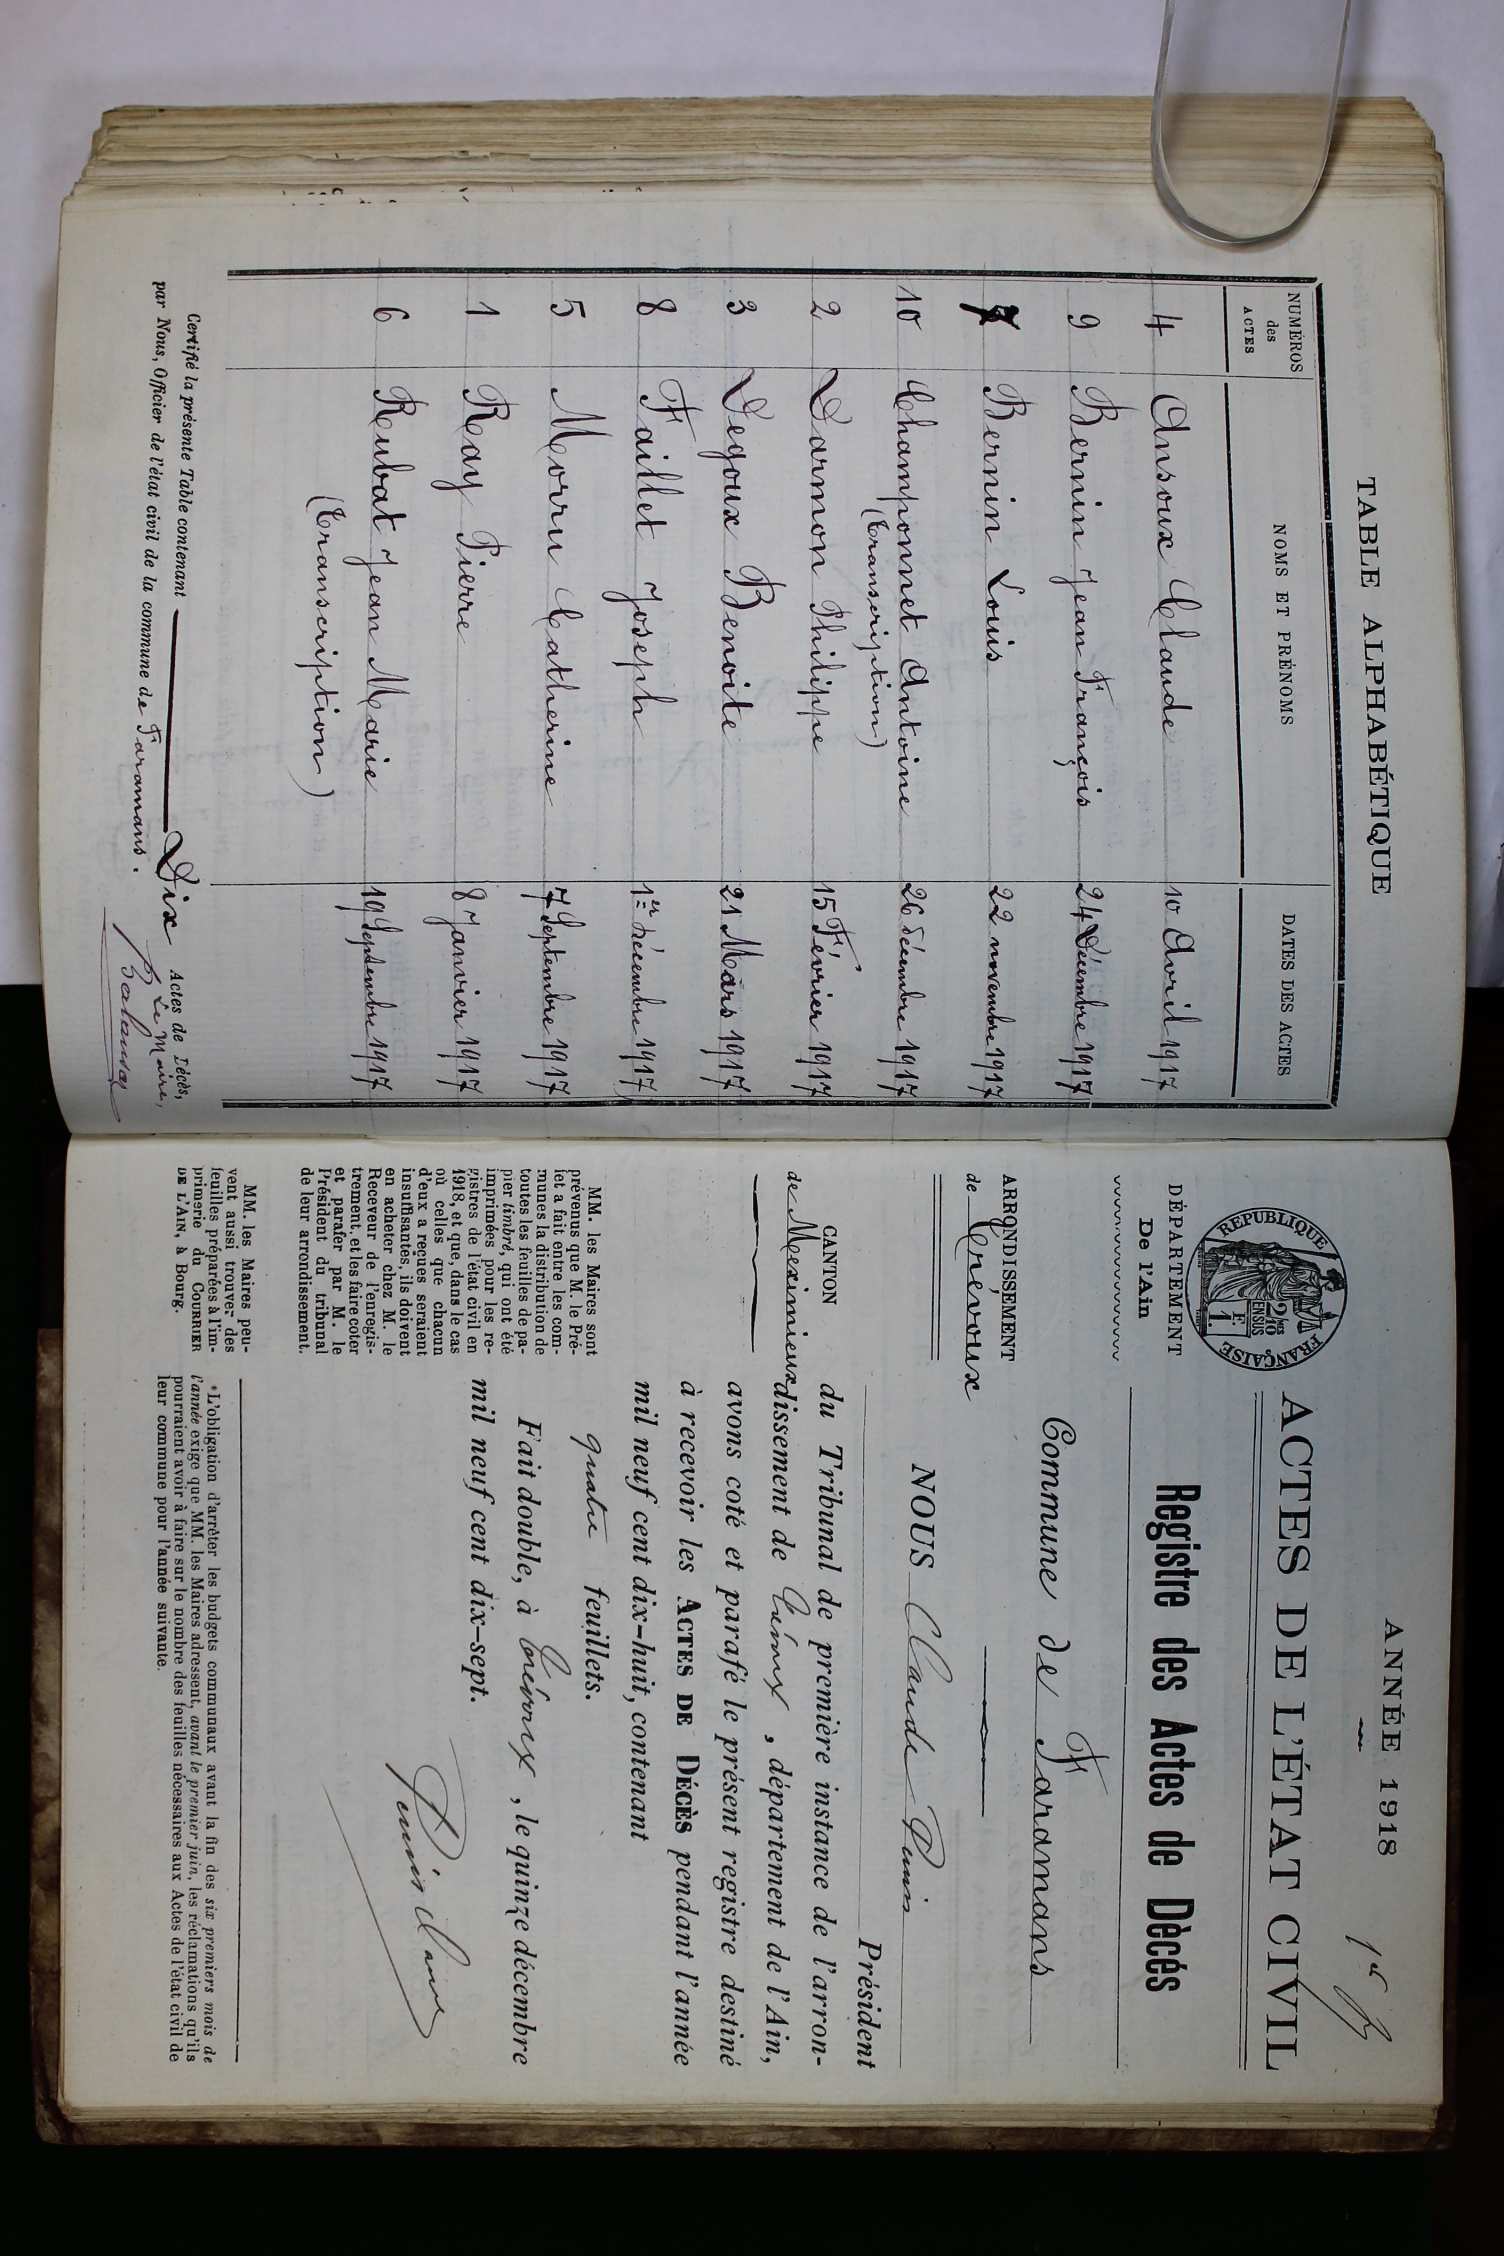 TABLE ALPHABÉTIQUE
NUMÉROS des ACTES
NOMS ET PRÉNOMS
DATES DES ACTES
4 Ansoux Claude 10 Avril 1917
9 Bernin Jean François 24 Décembre 1917
7 Bernin Louis 22 novembre 1917
10 Champonnet Antoine 26 Décembre 1917
(Transcription)
2 Darmon Philippe 15 Février 1917
3 Degoux Benoite 21 Mars 1917
8 Faillet Joseph 1er Décembre 1917
5 Morru Catherine 7 Septembre 1917
1 Ray Pierre 8 Janvier 1917
6 Rubat Jean Marie 19 Septembre 1917
(Transcription)
Certifié la présente Table contenant Dix Actes de Décès,
par Nous, Officier de l'état civil de la commune de Faramans.
Le Maire,
ANNÉE 1918
ACTES DE L'ÉTAT CIVIL
REPUBLIQUE FRANÇAISE
2/10es EN SUS
1 F.
DÉPARTEMENT
De l'Ain
ARRONDISSEMENT
de Trévoux
CANTON
de Meximieux
MM. les Maires sont
prévenus que M. le Pré-
fet a fait entre les com-
munes la distribution de
toutes les feuilles de pa-
pier timbré, qui ont été
imprimées pour les re-
gistres de l'état civil en
1918, et que, dans le cas
où celles que chacun
d'eux a reçues seraient
insuffisantes, ils doivent
en acheter chez M. le
Receveur de l'enregis-
trement, et les faire coter
et parafer par M. le
Président du tribunal
de leur arrondissement.
MM. les Maires peu-
vent aussi trouver des
feuilles préparées à l'im-
primerie du COURRIER
DE L'AIN, à Bourg.
Registre des Actes de Décés
Commune de Faramans
NOUS Claude Punis
Président
du Tribunal de première instance de l'arron-
dissement de Trévoux, département de l'Ain,
avons coté et parafé le présent registre destiné
à recevoir les ACTES DE DÉCÈS pendant l'année
mil neuf cent dix-huit, contenant
quatre feuillets.
Fait double, à Trévoux, le quinze décembre
mil neuf cent dix-sept.
*L'obligation d'arrêter les budgets communaux avant la fin des six premiers mois de
l'année exige que MM. les Maires adressent, avant le premier juin, les réclamations qu'ils
pourraient avoir à faire sur le nombre des feuilles nécessaires aux Actes de l'état civil de
leur commune pour l'année suivante.